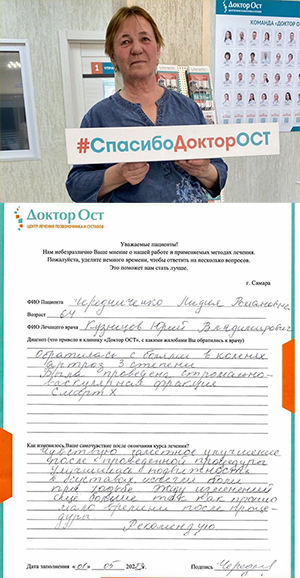 Доктор Ост
КОМАНДА «ДОКТОР О
#СпасибоДокторОСТ
ДОКТОР ОСТ
ЦЕНТР ЛЕЧЕНИЯ ПОЗВОНОЧНИКА И СУСТАВОВ
Уважаемые пациенты!
Нам небезразлично Ваше мнение о нашей работе и применяемых методах лечения.
Пожалуйста, уделите немного времени, чтобы ответить на несколько вопросов.
Это поможет нам стать лучше.
г. Самара
ФИО Пациента Чередниченко Лидия Романовна
Возраст 64
ФИО Лечащего врача Кузнецов Юрий Владимирович
Диагноз (что привело в клинику «Доктор ОСТ», с какими жалобами Вы обратились к врачу)
Обратилась с болями в коленях
Артроз 3 степени
Была проведена стромально-
васкулярная фракция
Как изменилось Ваше самочувствие после окончания курса лечения?
Чувствую заметное улучшение
после проведенной процедуры
Улучшилась подвижность
в суставах, исчезли боли
при ходьбе. Жду изменений
ещё больше так как прошло
мало времени после проце-
дуры
Рекомендую
Дата заполнения «01» 05 202 г. Подпись